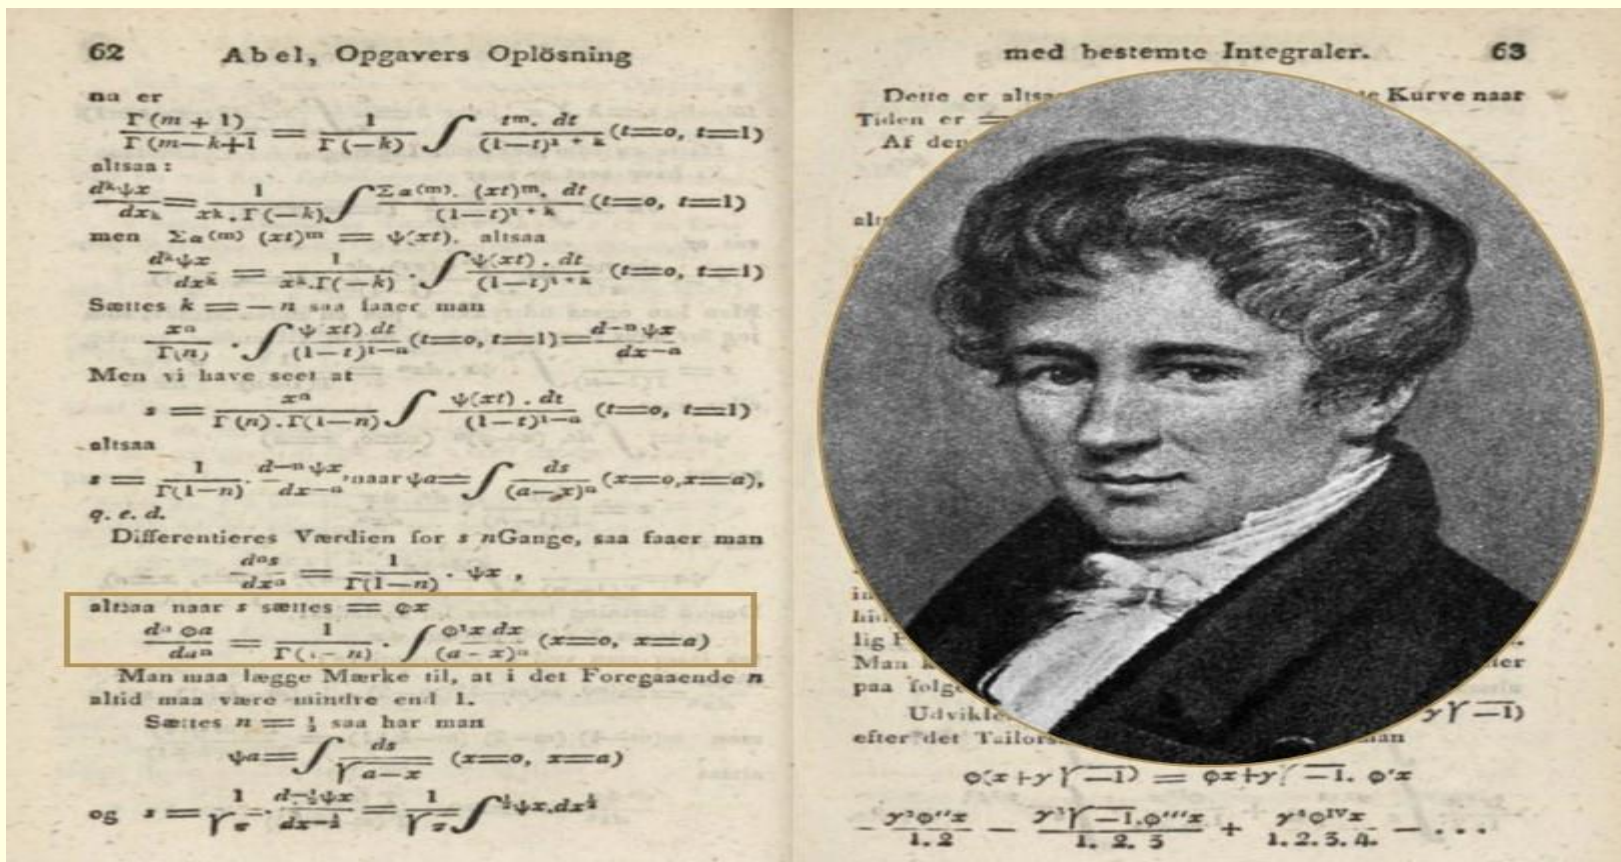 62 Abel, Opgavers Oplösning
na er
Γ(m + 1) / Γ(m—k+1 = 1 / Γ(—k) ∫ tᵐ. dt / (1—t)¹ ⁺ ᵏ (t=0, t=1)
altsaa:
dᵏψx / dxₖ = 1 / xᵏ.Γ(—k) ∫ Σa⁽ᵐ⁾. (xt)ᵐ. dt / (1—t)¹ ⁺ ᵏ (t=0, t=1)
men Σa⁽ᵐ⁾ (xt)ᵐ = ψ(xt). altsaa
dᵏψx / dxᵏ = 1 / xᵏ.Γ(—k) . ∫ ψ(xt) . dt / (1—t)¹⁺ᵏ (t=0, t=1)
Sættes k = — n saa faaer man
xⁿ / Γ(n) . ∫ ψ(xt) dt / (1—t)¹⁻ⁿ (t=0, t=1) = d⁻ⁿψx / dx⁻ⁿ
Men vi have seet at
s = xⁿ / Γ(n).Γ(1—n) ∫ ψ(xt) . dt / (1—t)¹⁻ⁿ (t=0, t=1)
altsaa
s = 1 / Γ(1—n) . d⁻ⁿψx / dx⁻ⁿ, naar ψa = ∫ ds / (a—x)ⁿ (x=0, x=a),
q. e. d.
Differentieres Værdien for s nGange, saa faaer man
dⁿs / dxⁿ = 1 / Γ(1—n) . ψx ,
altsaa naar s sættes = φx
dⁿ φa / daⁿ = 1 / Γ(1 — n) . ∫ φ¹x dx / (a - x)ⁿ (x=0, x=a)
Man maa lægge Mærke til, at i det Foregaaende n
altid maa være mindre end 1.
Sættes n = ½ saa har man
ψa = ∫ ds / √a—x (x=0, x=a)
og s = 1 / √π . d⁻½ψx / dx⁻½ = 1 / √π ∫½ψx.dx½
med bestemte Integraler. 63
Dette er Kurve naar
Tiden er =
Af den
lig
Man
paa
√—1)
efter det
φ(x+y√—1) = φx+y√—1. φ'x
- y²φ''x / 1. 2 — y³√—1.φ'''x / 1. 2. 3 + y⁴φᴵⱽx / 1. 2. 3. 4. — . . .